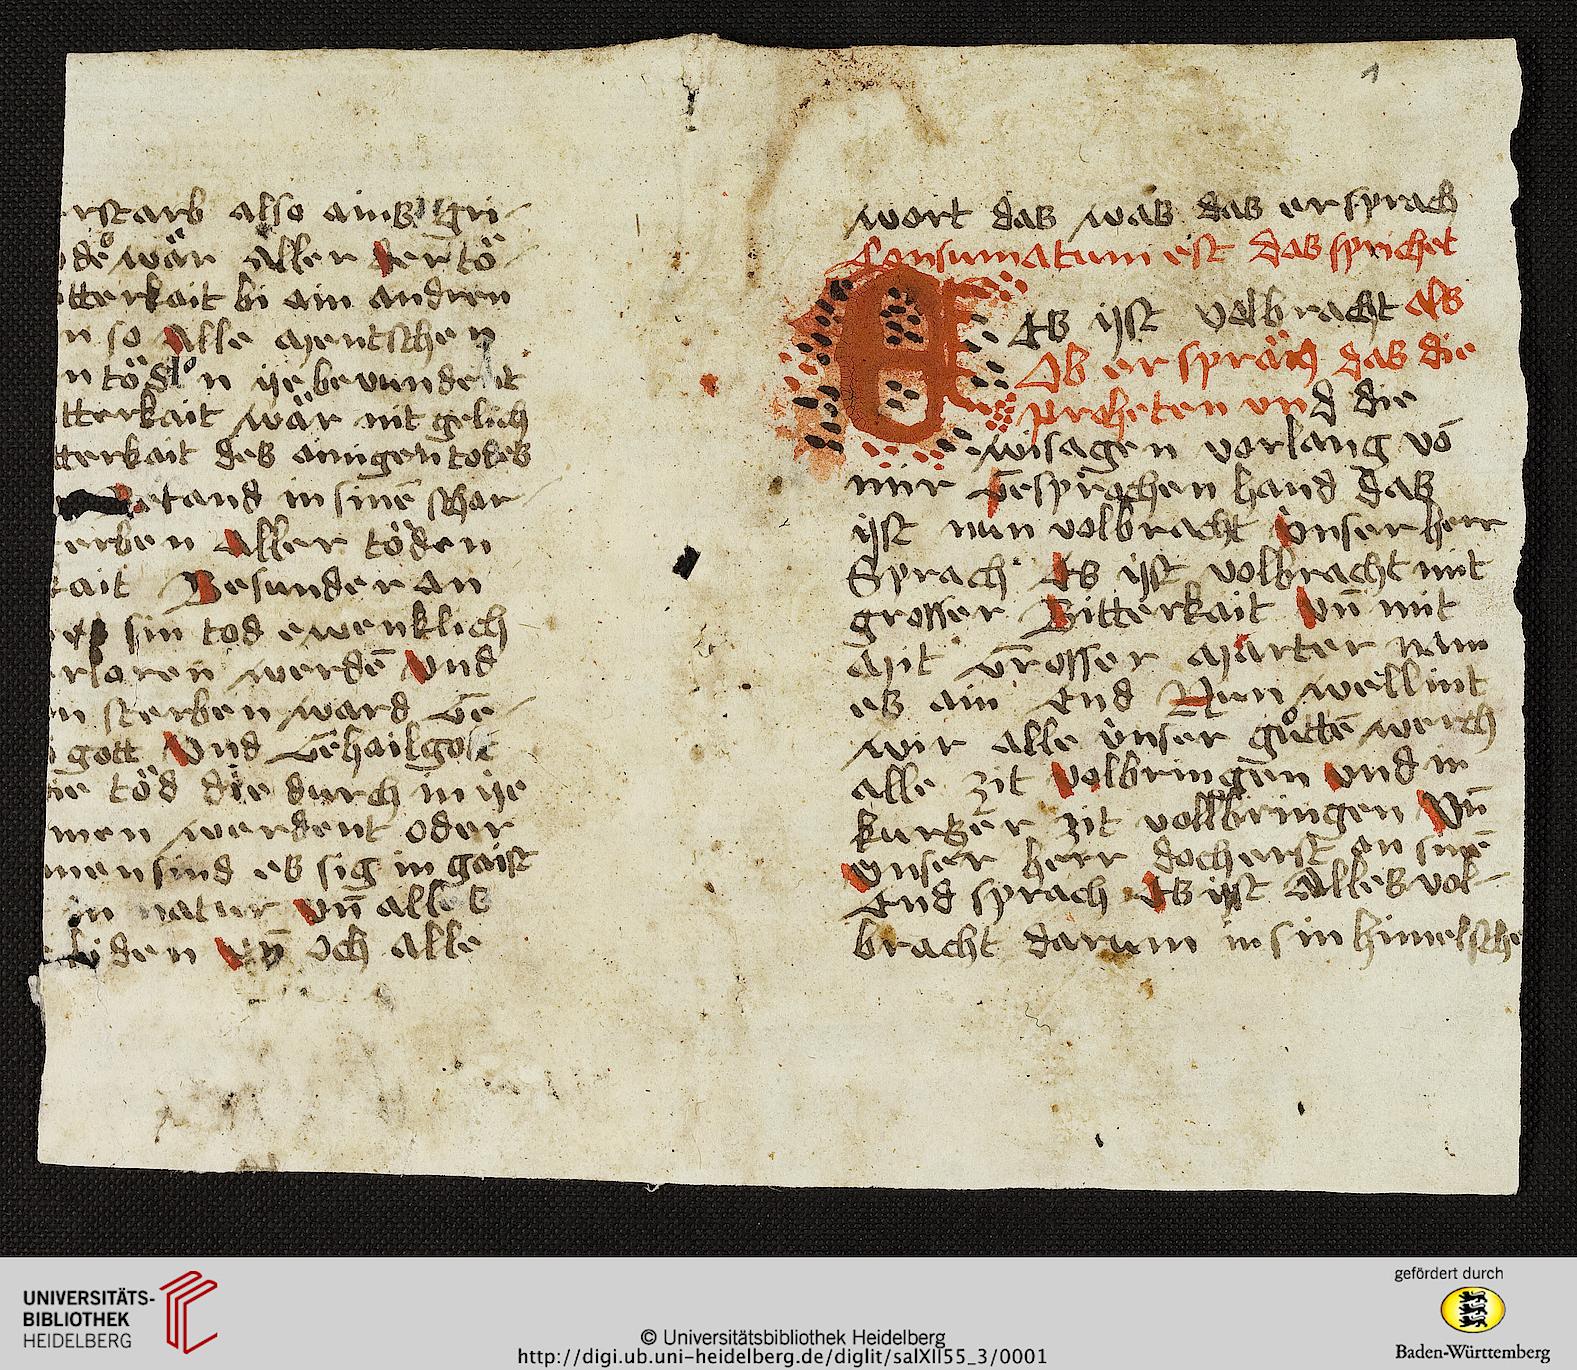 1
rstarb also ains gri
de wär Aller der tö
tterkait bi ain andren
n so Alle mentschen
n töd n ye bevundent
tterkait wär nit gelich
tterkait des ainigen todes
etand in sinē schar
erben Aller töden
kait Besunder an
sin tod ewenklich
erlaren werdē Und
n sterben ward Ge
gott Und Gehailgost
ie töd die durch in ye
men werdent oder
men sind es sig in gaist
in natur Vn̄ alles
liden Vn̄ Och alle
wort das was das er sprach
Consumatum est das sprichet
Es yst volbracht als
Ob er spräch das die
propheten und die
wisagen vorlang vō
mir Gesprachen hand das
yst nun volbracht Unser herr
Sprach Es yst volbracht mit
grosser Bitterkait Vn̄ mit
Mit Grosser Marter nam
es ain End Nun wellint
wir alle ünser gůttē werch
alle zit Volbringen Und in
kurtzer zit vollbringen Vn̄
Unser herr doch erst an sinē
End sprach Es yst Alles vol
bracht darum in sin himelsche
UNIVERSITÄTS-
BIBLIOTHEK
HEIDELBERG
© Universitätsbibliothek Heidelberg
http://digi.ub.uni-heidelberg.de/diglit/salXII55_3/0001
gefördert durch
Baden-Württemberg